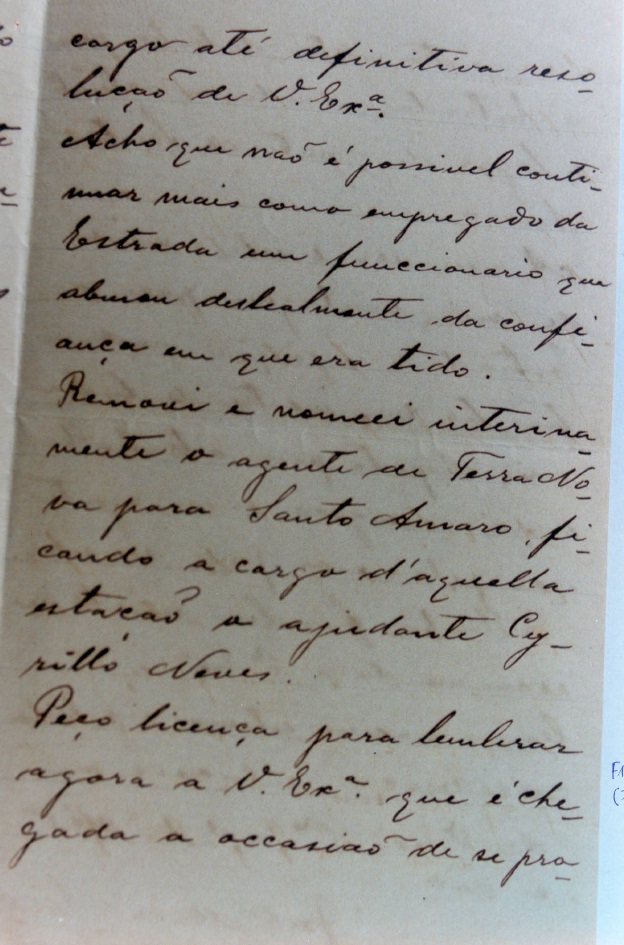 cargo até definitiva reso-
lução de V. Exª.
Acho que não é possivel conti-
nuar mais como empregado da
Estrada um funccionario que
abusou deslealmente da confi-
ança em que era tido.
Removi e nomeei interina-
mente o agente de Terra No-
va para Santo Amaro, fi-
cando a cargo d'aquella
estação o ajudante Cy-
rillo Neves.
Peço licença para lembrar
agora a V. Exª. que é che-
gada a occasião de se pro-